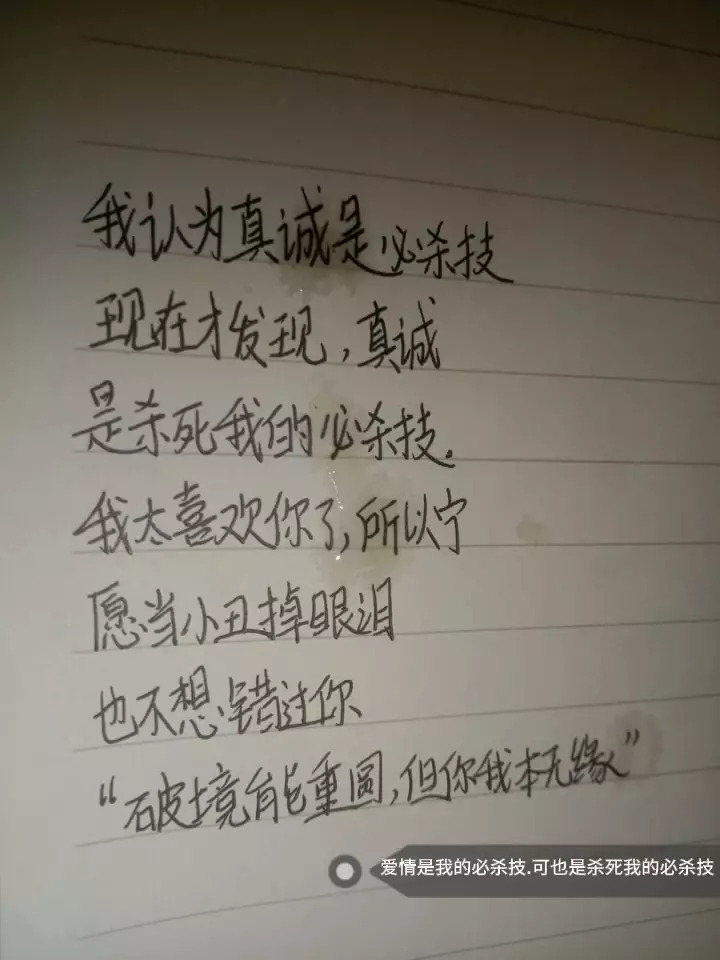 我认为真诚是必杀技
现在才发现，真诚
是杀死我的必杀技.
我太喜欢你了,所以宁
愿当小丑掉眼泪
也不想错过你
“破境能重圆,但你我本无缘”
爱情是我的必杀技.可也是杀死我的必杀技